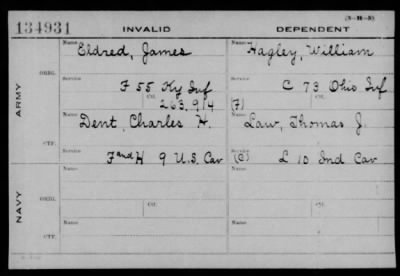 (3-M-3)
134931 INVALID DEPENDENT
Name Eldred, James Name Hagley, William
ARMY
ORIG.
Service F 55 Ky Inf Service C 73 Ohio Inf
Ctf. 263,914 Ctf.
(7)
Name Dent, Charles H. Name Law, Thomas J.
CTF.
Service F and H 9 U.S. Cav Service (C) L 10 Ind Cav
NAVY
Name Name
ORIG.
Ctf. Ctf.
Name Name
CTF.